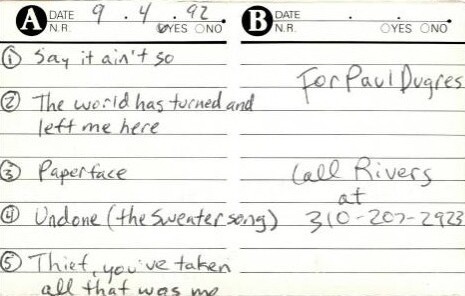 A DATE 9 . 4 . 92.
N.R. YES NO
① Say it ain't so
② The world has turned and
left me here
③ Paperface
④ Undone (the Sweater song)
⑤ Thief, you've taken
all that was me
B DATE . .
N.R. YES NO
For Paul Dugres
Call Rivers
at
310-207-2923